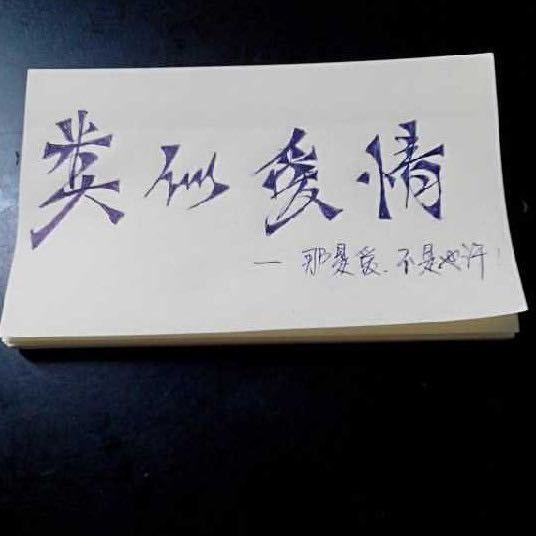 类似爱情
— 那是爱、不是也许!